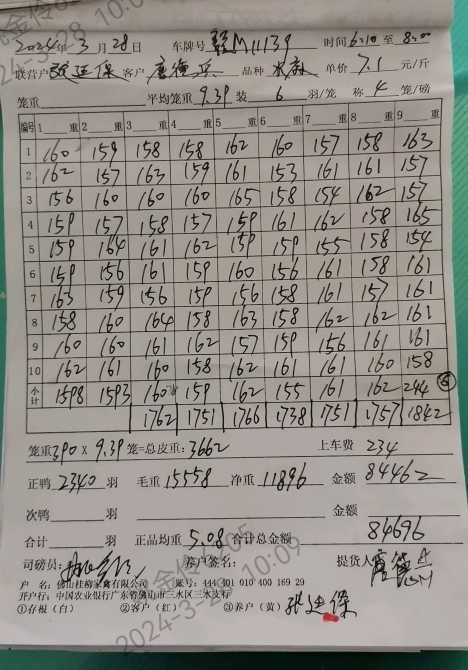 2024年 3 月 28 日 车牌号 赣M11139 时间 6:10 至 8:00
联营户 张廷保 客户 唐德兵 品种 水鸭 单价 7.1 元/斤
笼重 平均笼重 9.39 装 6 羽/笼 称 4 笼/磅
编号 1 重 2 重 3 重 4 重 5 重 6 重 7 重 8 重 9 重
1 160 159 158 158 162 160 157 158 163
2 162 157 163 159 161 153 161 161 157
3 156 160 160 160 165 158 154 162 157
4 159 157 158 157 159 161 162 158 165
5 159 164 161 162 159 159 155 158 154
6 159 156 161 159 160 156 161 158 161
7 163 159 156 159 156 158 161 157 161
8 158 160 164 158 163 158 162 162 161
9 160 160 161 162 157 159 156 161 161
10 162 161 160 158 162 161 161 160 158
小计 1598 1593 160 159 162 155 161 162 244 ⑥
1762 1751 1766 1738 1751 1757 1842
笼重 390 × 9.39 笼=总皮重: 3662 上车费 234
正鸭 2340 羽 毛重 15558 净重 11896 金额 84462
次鸭 羽 金额
合计 羽 正品均重 5.08 合计总金额 84696
司磅员: 养户签名: 提货人 唐德兵
户 名: 佛山桂柳家禽有限公司 账号: 444 301 010 400 169 29
开户行: 中国农业银行广东省佛山市三水区三水支行
①存根（白） ②客户（红） ③养户（黄） 张廷保
2024-3-28 10:09